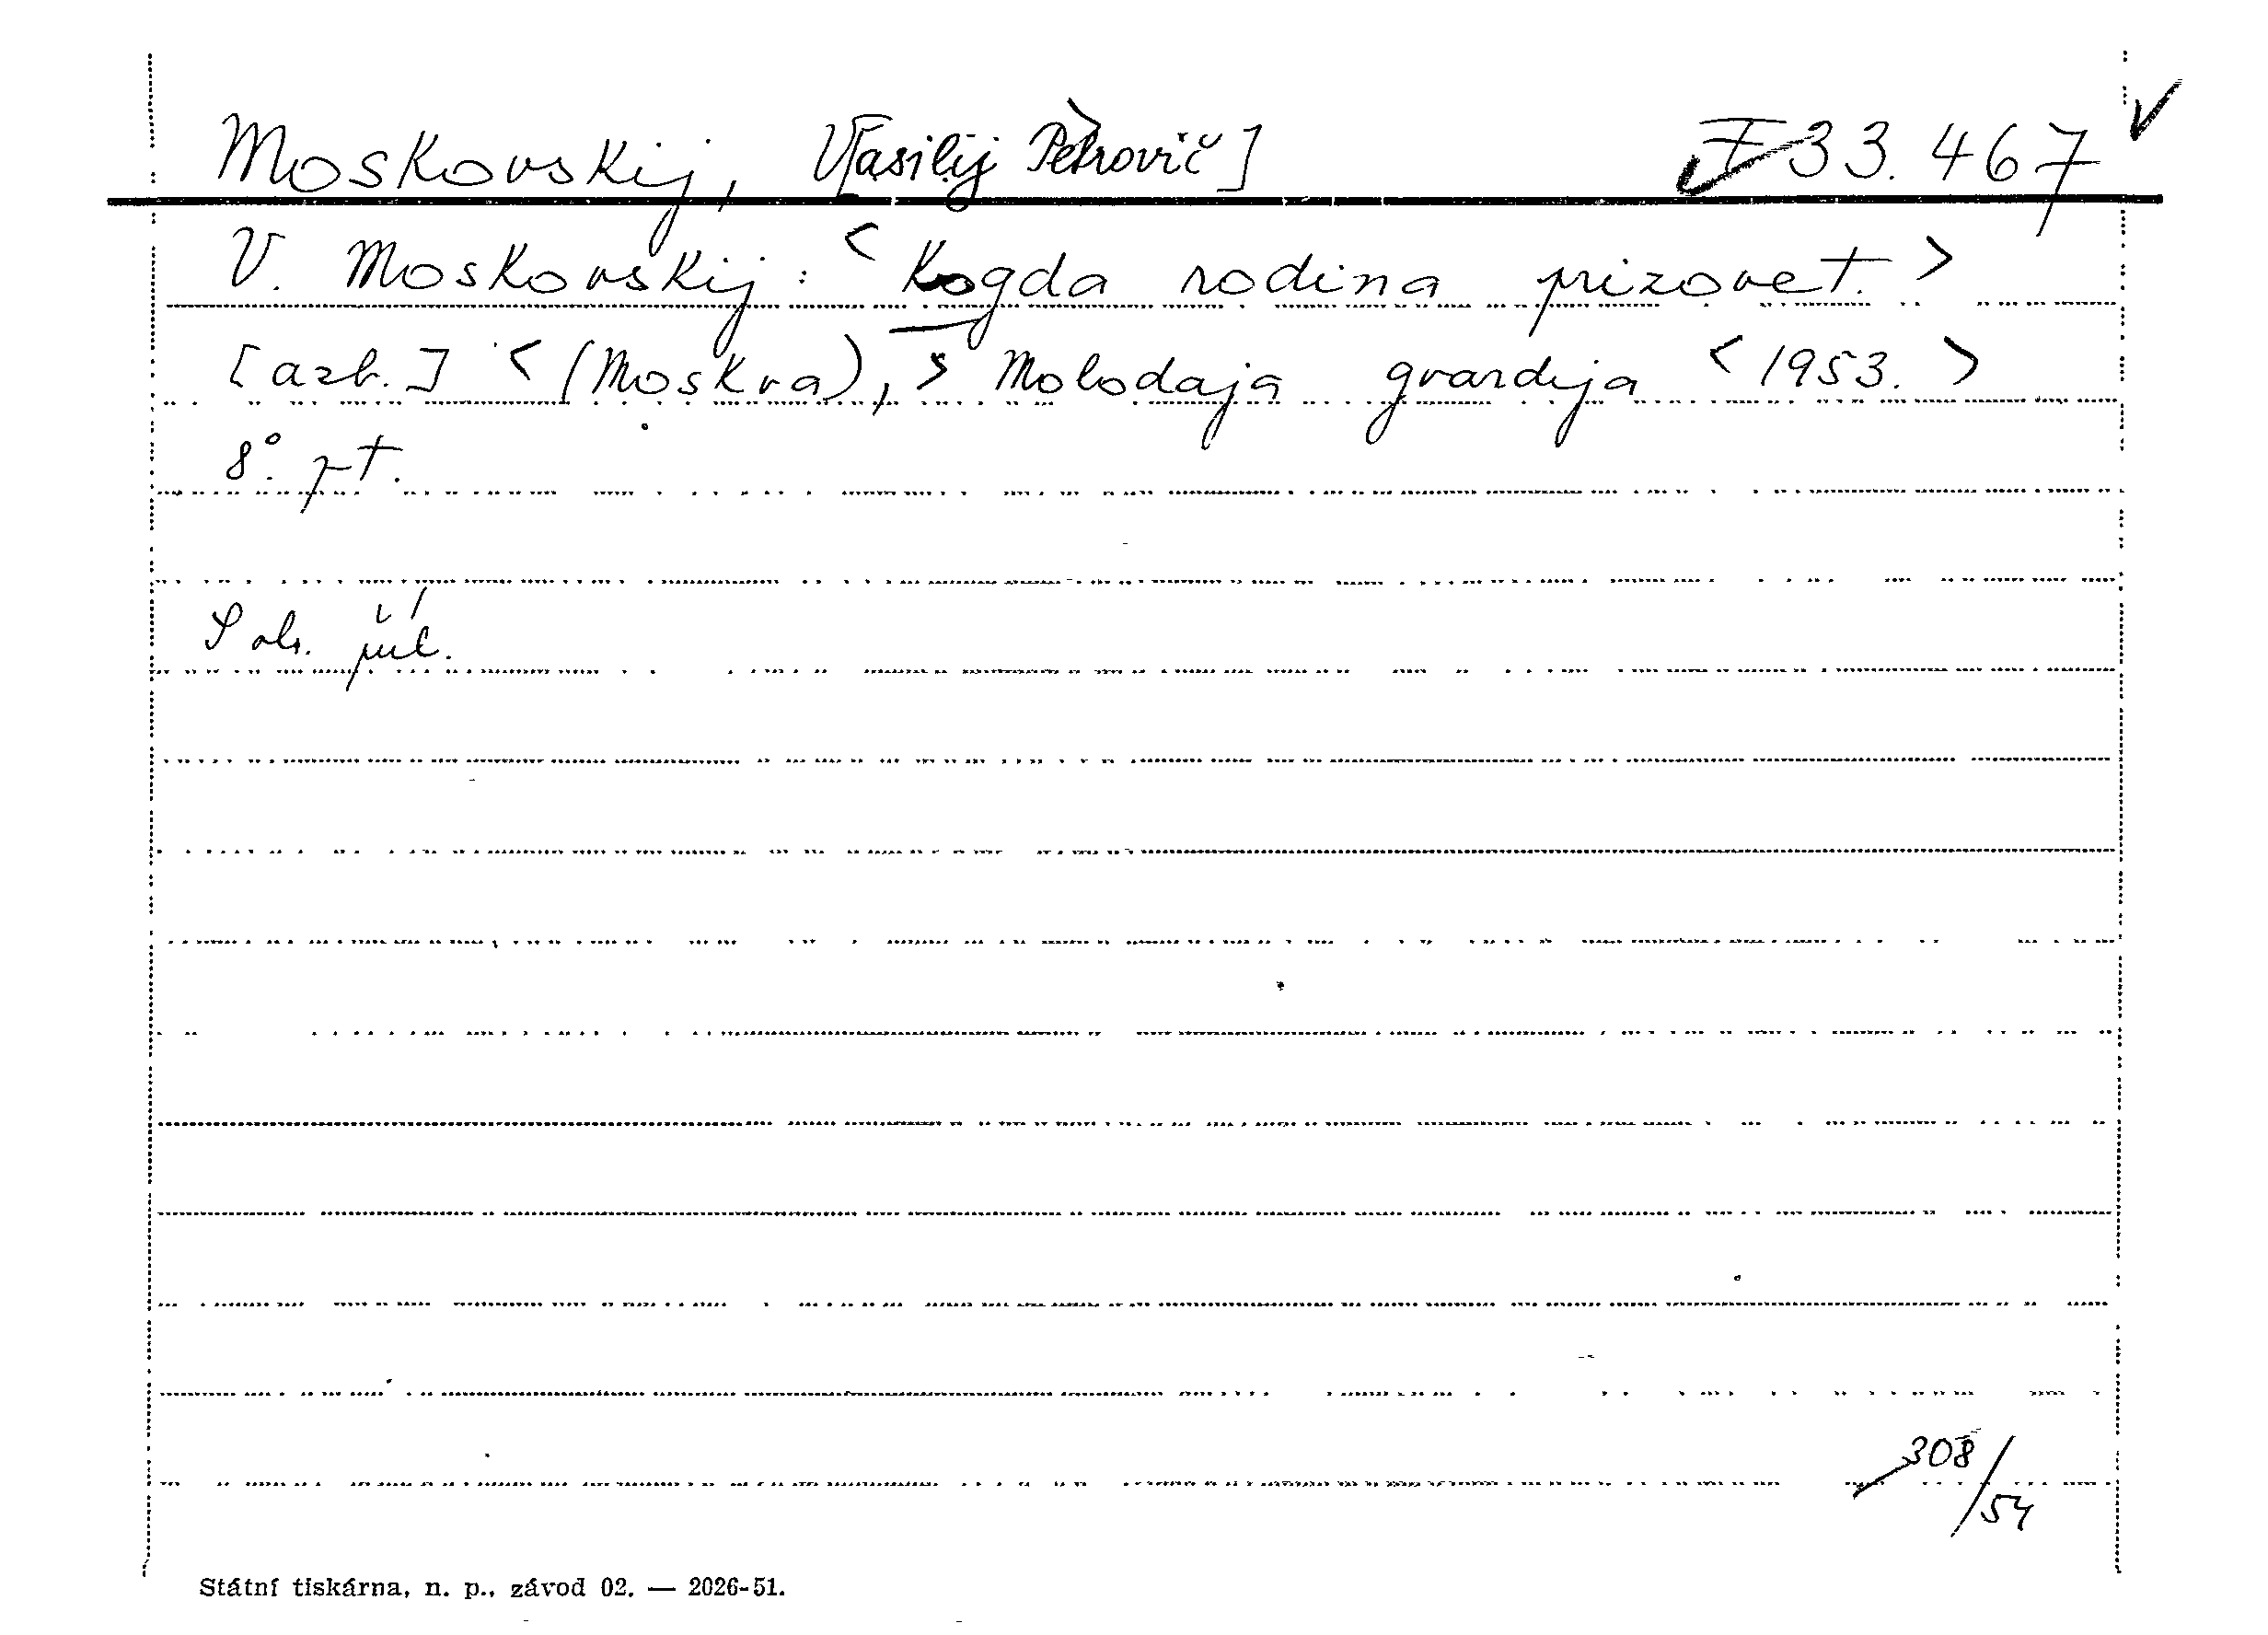 Moskovskij, V[asilij Petrovič] I 33.467
V. Moskovskij: <Kogda rodina prizovet.>
[azb.] <(Moskva),> Molodaja gvardija <1953.>
8°. pt.
S ob.
308/54
Státní tiskárna, n. p., závod 02. — 2026-51.